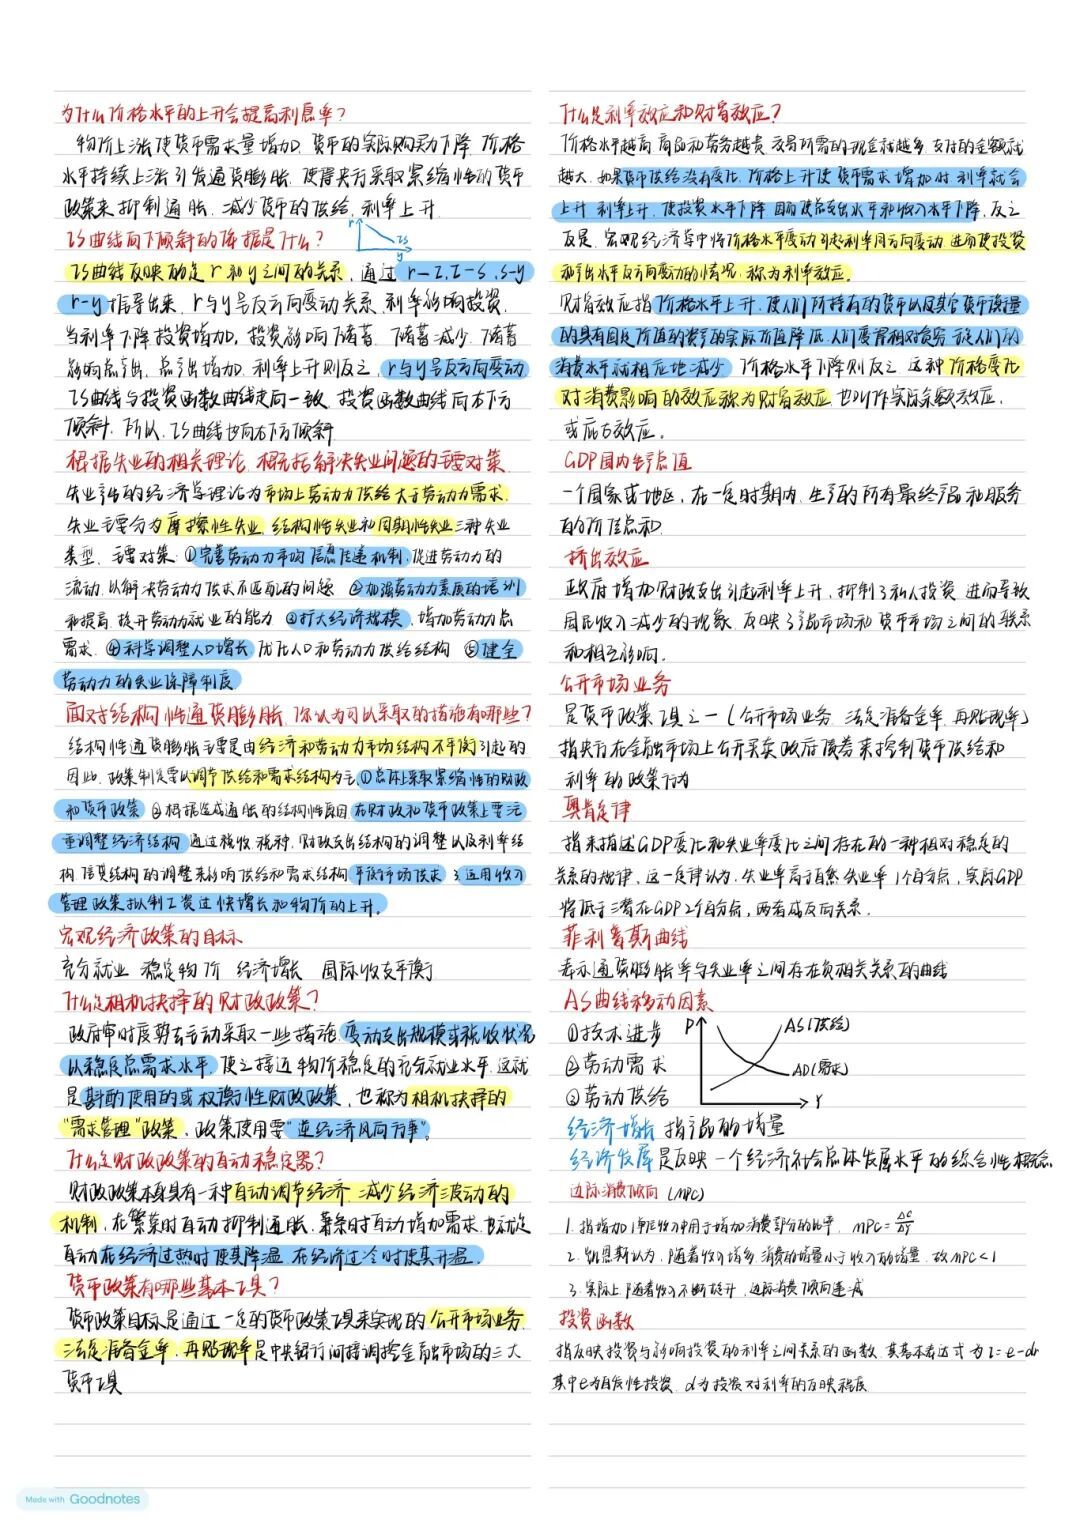 为什么价格水平的上升会提高利息率？
物价上涨使货币需求量增加，货币的实际购买力下降，价格
水平持续上涨引发通货膨胀，使得央行采取紧缩性的货币
政策来抑制通胀，减少货币的供给，利率上升
IS曲线向下倾斜的依据是什么？
r
IS
y
IS曲线反映的是r和y之间的关系，通过r-I,I-S,S-y
r-y推导出来，r与y呈反方向变动关系，利率影响投资，
当利率下降投资增加，投资影响储蓄，储蓄减少，储蓄
影响总产出，总产出增加，利率上升则反之，r与y呈反方向变动
IS曲线与投资函数曲线走向一致，投资函数曲线向右下方
倾斜，所以，IS曲线也向右下方倾斜
根据失业的相关理论，概括解决失业问题的主要对策
失业产生的经济学理论为市场上劳动力供给大于劳动力需求，
失业主要分为摩擦性失业，结构性失业和周期性失业三种失业
类型，主要对策：①完善劳动力市场信息传递机制，促进劳动力的
流动，以解决劳动力供求不匹配的问题 ②加强劳动力素质的培训
和提高，提升劳动力就业的能力 ③扩大经济规模，增加劳动力总
需求，④科学调整人口增长，优化人口和劳动力供给结构 ⑤健全
劳动力的失业保障制度
面对结构性通货膨胀，你认为可以采取的措施有哪些？
结构性通货膨胀主要是由经济和劳动力市场结构不平衡引起的
因此，政策制定要以调节供给和需求结构为主，①总体上采取紧缩性的财政
和货币政策 ②根据造成通胀的结构性原因，在财政和货币政策上要注
重调整经济结构，通过税收，税种，财政支出结构的调整以及利率结
构，信贷结构的调整来影响供给和需求结构，平衡市场供求 ③运用收入
管理政策抑制工资过快增长和物价的上升。
宏观经济政策的目标
充分就业 稳定物价 经济增长 国际收支平衡
什么是相机抉择的财政政策？
政府审时度势主动采取一些措施，变动支出规模或税收状况
以稳定总需求水平，使之接近物价稳定的充分就业水平，这就
是斟酌使用的或权衡性财政政策，也称为相机抉择的
“需求管理”政策，政策使用要“逆经济风向行事”。
什么是财政政策的自动稳定器？
财政政策本身具有一种自动调节经济，减少经济波动的
机制，在繁荣时自动抑制通胀，萧条时自动增加需求，也就是
自动在经济过热时使其降温，在经济过冷时使其升温。
货币政策有哪些基本工具？
货币政策目标是通过一定的货币政策工具来实现的，公开市场业务，
法定准备金率，再贴现率是中央银行间接调控金融市场的三大
货币工具
什么是利率效应和财富效应？
价格水平越高，商品和劳务越贵，交易所需的现金就越多，支付的金额就
越大，如果货币供给没有变化，价格上升使货币需求增加时，利率就会
上升，利率上升，使投资水平下降，因而使总支出水平和收入水平下降，反之
反是，宏观经济学中将价格水平变动引起利率同方向变动，进而使投资
和产出水平反方向变动的情况，称为利率效应。
财富效应指价格水平上升，使人们所持有的货币以及其它货币度量
的具有固定价值的资产的实际价值降低，人们变得相对贫穷，于是人们的
消费水平就相应地减少，价格水平下降则反之，这种价格变化
对消费影响的效应称为财富效应，也叫作实际余额效应，
或庇古效应。
GDP国内生产总值
一个国家或地区，在一定时期内，生产的所有最终产品和服务
的价值总和.
挤出效应
政府增加财政支出引起利率上升，抑制了私人投资，进而导致
国民收入减少的现象，反映了产品市场和货币市场之间的联系
和相互影响.
公开市场业务
是货币政策工具之一（公开市场业务，法定准备金率，再贴现率）
指央行在金融市场上公开买卖政府债券来控制货币供给和
利率的政策行为
奥肯定律
指来描述GDP变化和失业率变化之间存在的一种相对稳定的
关系的规律，这一定律认为，失业率高于自然失业率1个百分点，实际GDP
将低于潜在GDP2个百分点，两者成反向关系.
菲利普斯曲线
表示通货膨胀率与失业率之间存在负相关关系的曲线
AS曲线移动因素
①技术进步
②劳动需求
③劳动供给
P
AS(供给)
AD(需求)
Y
经济增长 指产品的增量
经济发展 是反映一个经济社会总体发展水平的综合性概念
边际消费倾向 (MPC)
1. 指增加1单位收入中用于增加消费部分的比率，MPC=ΔC/ΔY
2. 凯恩斯认为，随着收入增多，消费的增量小于收入的增量，故MPC<1
3. 实际上，随着收入不断提升，边际消费倾向递减
投资函数
指反映投资与影响投资的利率之间关系的函数，其基本表达式为i=e-dr
其中e为自发性投资，d为投资对利率的反映程度
Made with Goodnotes